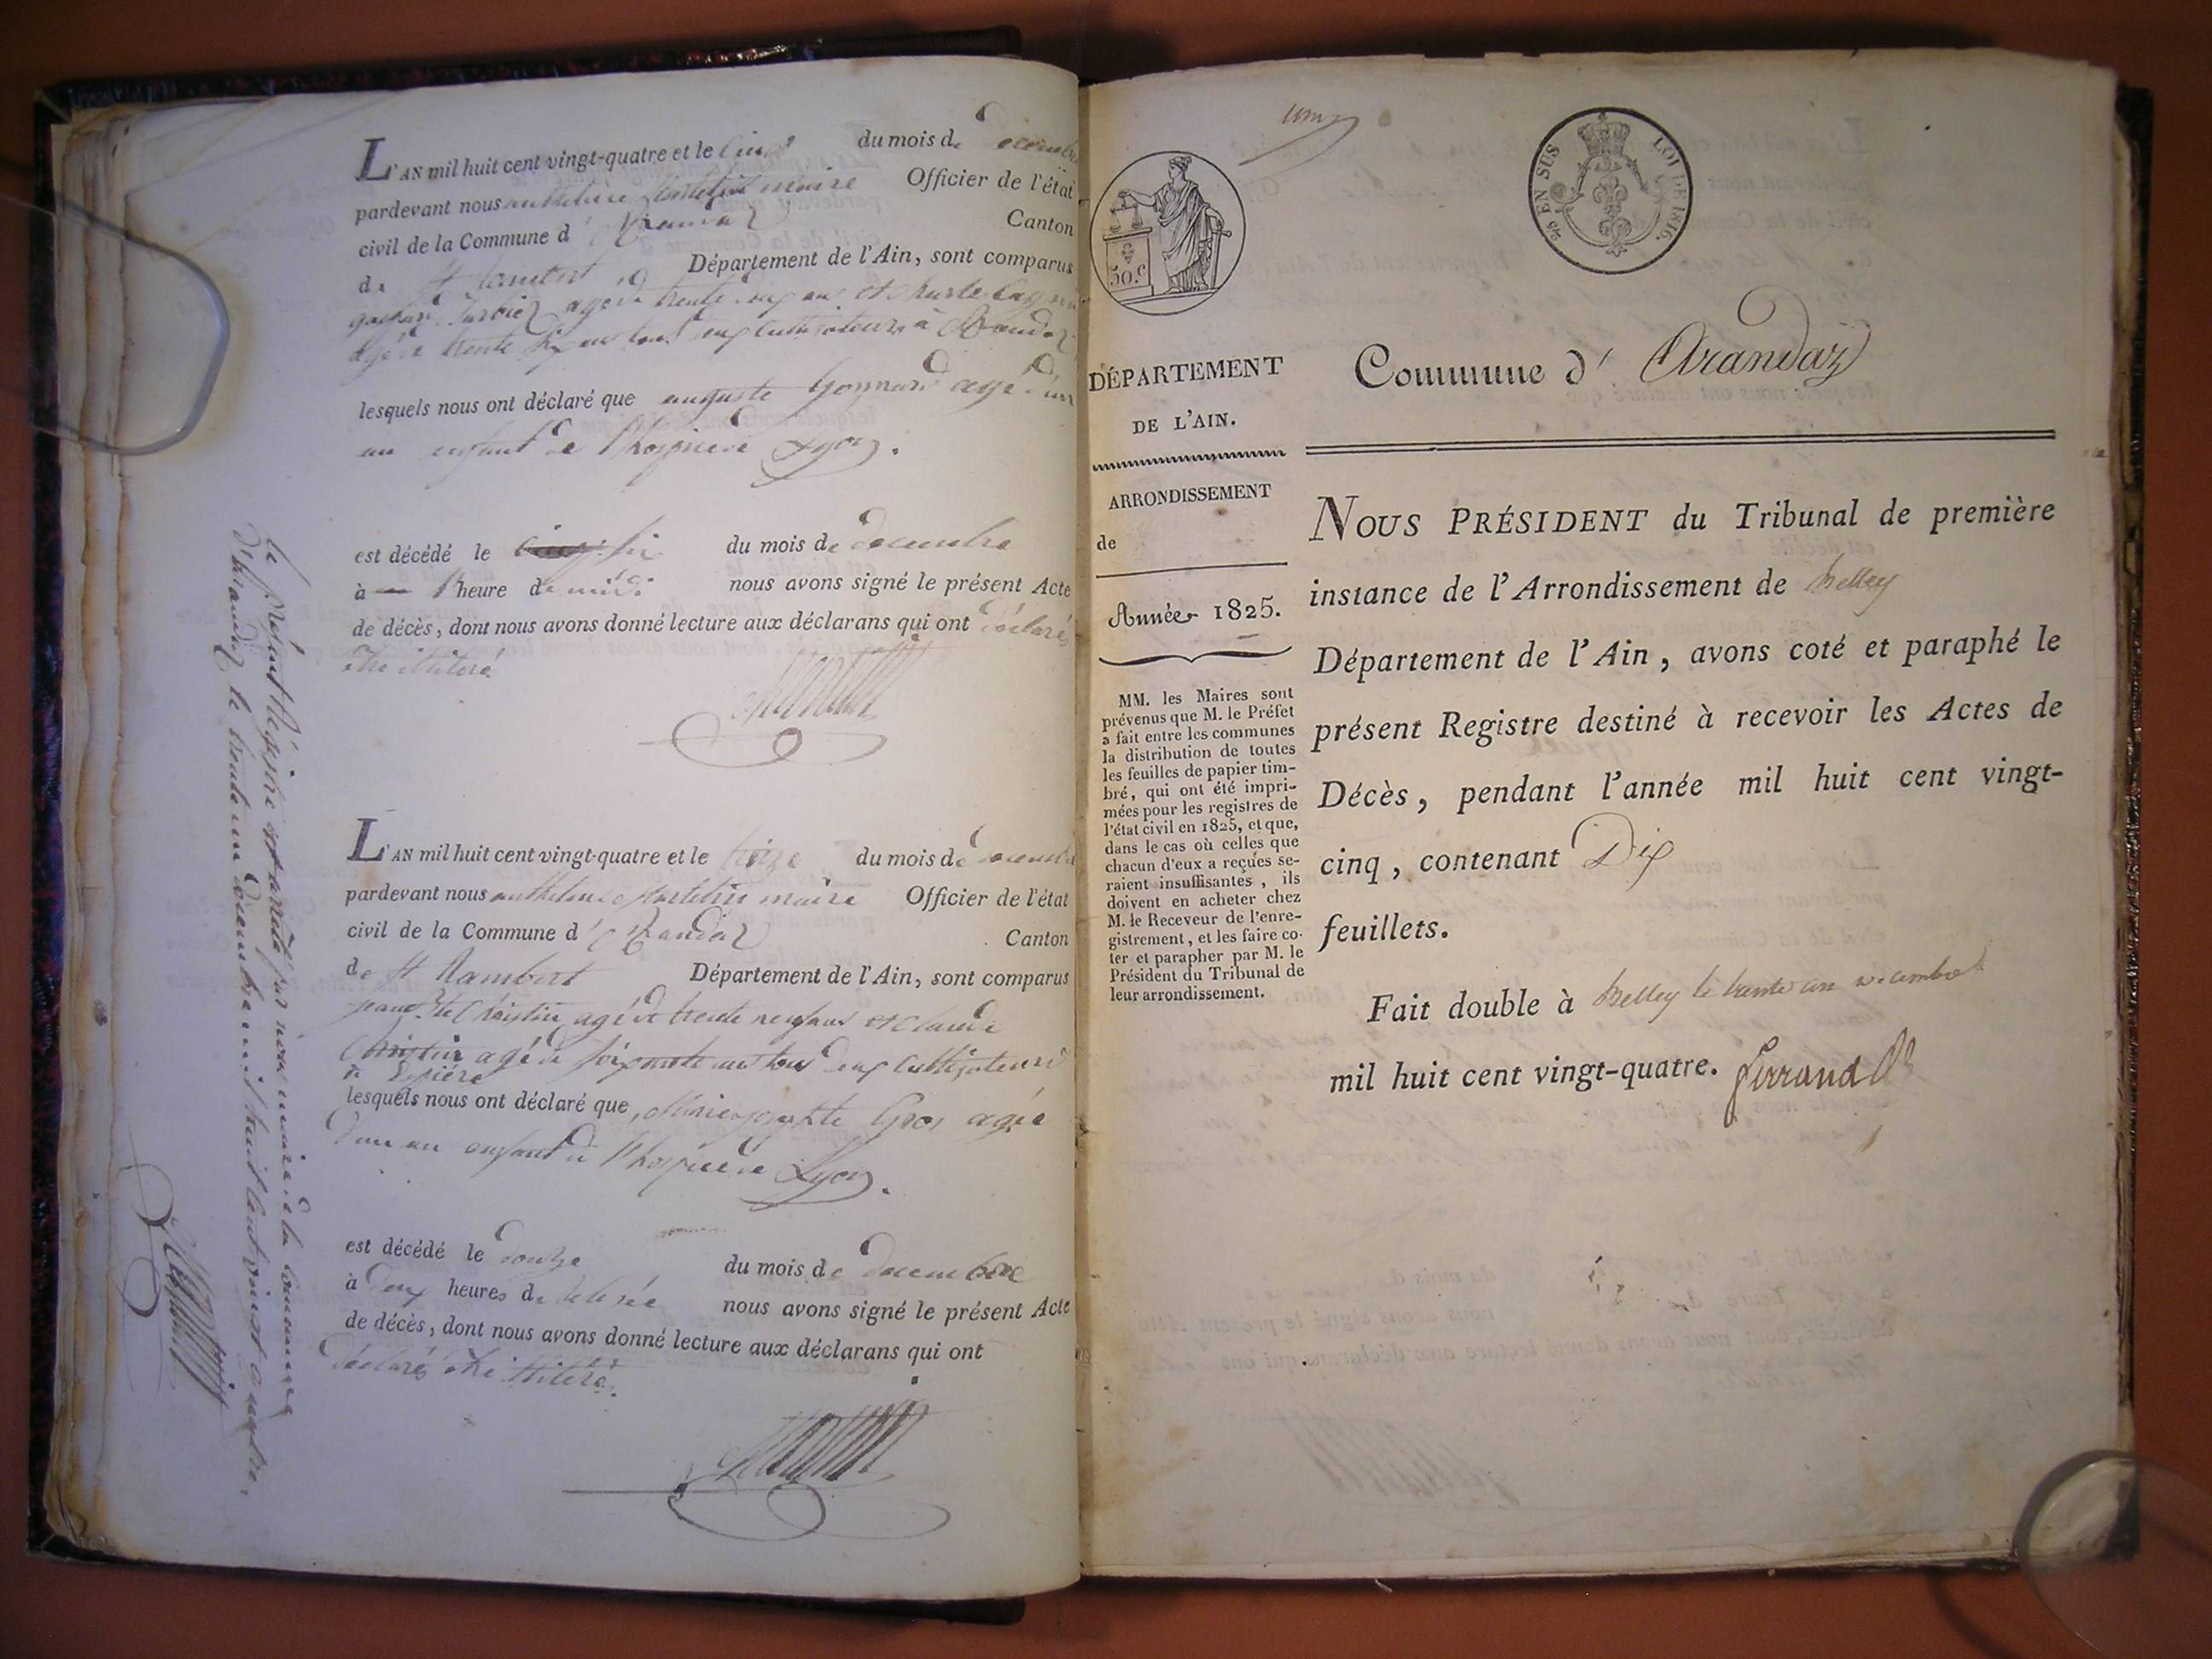 L'AN mil huit cent vingt-quatre et le du mois de
pardevant nous maire Officier de l'état
civil de la Commune d' Arandaz Canton
de St Rambert Département de l'Ain, sont comparus
agé de trente ans et
agé de trente ans tous deux cultivateurs à Arandaz
lesquels nous ont déclaré que auguste agé d'un
an enfant de l'hospice de Lyon.
est décédé le six du mois de decembre
à 1 heure de midi nous avons signé le présent Acte
de décès, dont nous avons donné lecture aux déclarans qui ont déclaré
etre illiteré
L'AN mil huit cent vingt-quatre et le treize du mois de decembre
pardevant nous anthelme maire Officier de l'état
civil de la Commune d' Arandaz Canton
de St Rambert Département de l'Ain, sont comparus
jean Bte Christin agé de trente neuf ans et claude
Christin agé de soixante ans tous deux cultivateurs
lesquels nous ont déclaré que, Marie josephte Gros agée
d'un an enfant de l'hospice de Lyon.
est décédé le douze du mois de decembre
à deux heures de nous avons signé le présent Acte
de décès, dont nous avons donné lecture aux déclarans qui ont
déclaré etre illiteré.
Le présent Régistre est arreté par nous maire de la commune
d'arandaz le trente un decembre mil huit cent vingt quatre.
25 EN SUS
LOI DE 1816.
50.c
DÉPARTEMENT
DE L'AIN.
ARRONDISSEMENT
de
Année 1825.
MM. les Maires sont
prévenus que M. le Préfet
a fait entre les communes
la distribution de toutes
les feuilles de papier tim-
bré, qui ont été impri-
mées pour les registres de
l'état civil en 1825, et que,
dans le cas où celles que
chacun d'eux a reçues se-
raient insuffisantes, ils
doivent en acheter chez
M. le Receveur de l'enre-
gistrement, et les faire co-
ter et parapher par M. le
Président du Tribunal de
leur arrondissement.
Commune d' Arandaz
NOUS PRÉSIDENT du Tribunal de première
instance de l'Arrondissement de Belley
Département de l'Ain, avons coté et paraphé le
présent Registre destiné à recevoir les Actes de
Décès, pendant l'année mil huit cent vingt-
cinq, contenant Dix
feuillets.
Fait double à Belley le trente un decembre
mil huit cent vingt-quatre. Ferrand